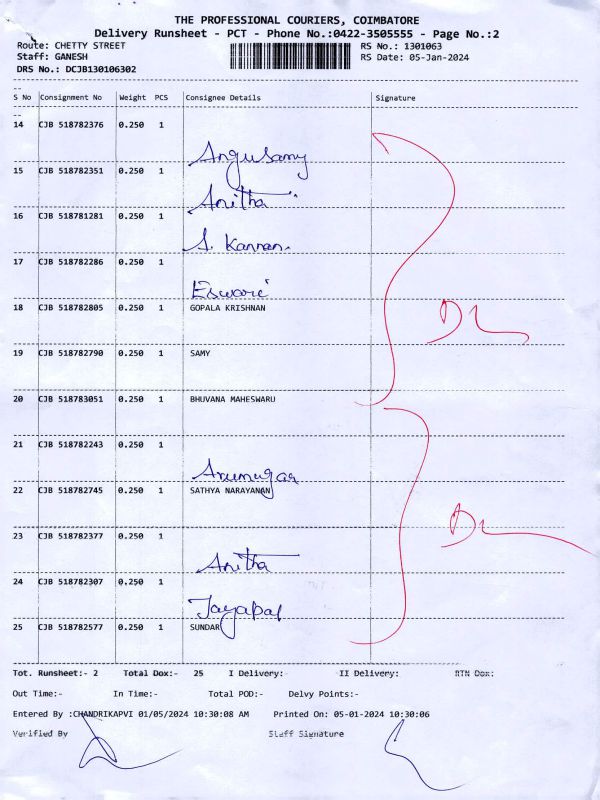 THE PROFESSIONAL COURIERS, COIMBATORE
Delivery Runsheet - PCT - Phone No.:0422-3505555 - Page No.:2
Route: CHETTY STREET RS No.: 1301063
Staff: GANESH RS Date: 05-Jan-2024
DRS No.: DCJB130106302
S No Consignment No Weight PCS Consignee Details Signature
14 CJB 518782376 0.250 1
Angusamy
15 CJB 518782351 0.250 1
Anitha
16 CJB 518781281 0.250 1
S. Kannan.
17 CJB 518782286 0.250 1
Eswari
18 CJB 518782805 0.250 1 GOPALA KRISHNAN
19 CJB 518782790 0.250 1 SAMY
20 CJB 518783051 0.250 1 BHUVANA MAHESWARU
21 CJB 518782243 0.250 1
Arumugar
22 CJB 518782745 0.250 1 SATHYA NARAYANAN
23 CJB 518782377 0.250 1
Anitha
24 CJB 518782307 0.250 1
Jayapal
25 CJB 518782577 0.250 1 SUNDAR
Tot. Runsheet:- 2 Total Dox:- 25 I Delivery:- II Delivery: RTN Dox:
Out Time:- In Time:- Total POD:- Delvy Points:-
Entered By :CHANDRIKAPVI 01/05/2024 10:30:08 AM Printed On: 05-01-2024 10:30:06
Verified By Staff Signature